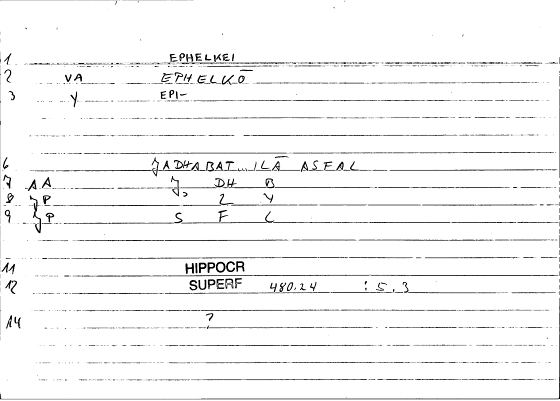 1 EPHELKEI
2 VA EPHELKŌ
3 Y EPI-
6 ʒADHABAT...ILĀ ASFAL
7 AA ʒ, DH B
8 ʒP 2 Y
9 ʒP S F L
11 HIPPOCR
12 SUPERF 480.24 :5.3
14 ?